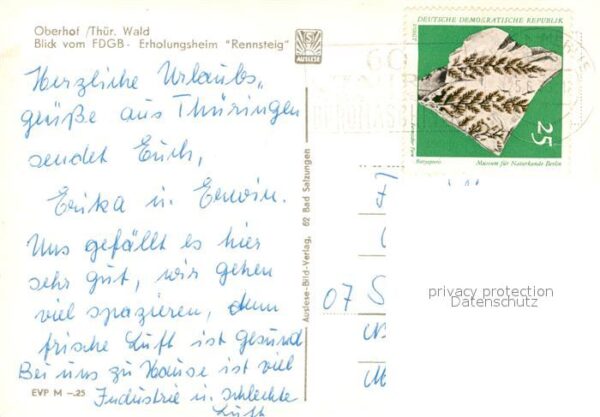 Oberhof /Thür. Wald
Blick vom FDGB - Erholungsheim "Rennsteig"
AUSLESE
Herzliche Urlaubs-
grüße aus Thüringen
sendet Euch,
Erika u. Erwin.
Uns gefällt es hier
sehr gut, wir gehen
viel spazieren, denn
frische Luft ist gesund
Bei uns zu Hause ist viel
Industrie u. schlechte
Luft
EVP M -.25
Auslese-Bild-Verlag, 62 Bad Salzungen
DEUTSCHE DEMOKRATISCHE REPUBLIK
25
Museum für Naturkunde Berlin
60
07 S
privacy protection
Datenschutz